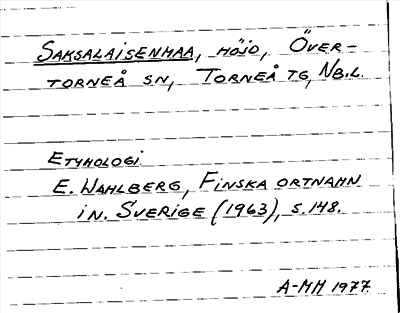 SAKSALAISENMAA, HÖJD, ÖVER-
TORNEÅ SN, TORNEÅ TG, NB.L.
ETYMOLOGI
E. WAHLBERG, FINSKA ORTNAMN
I N. SVERIGE (1963), S. 148.
A-MH 1977